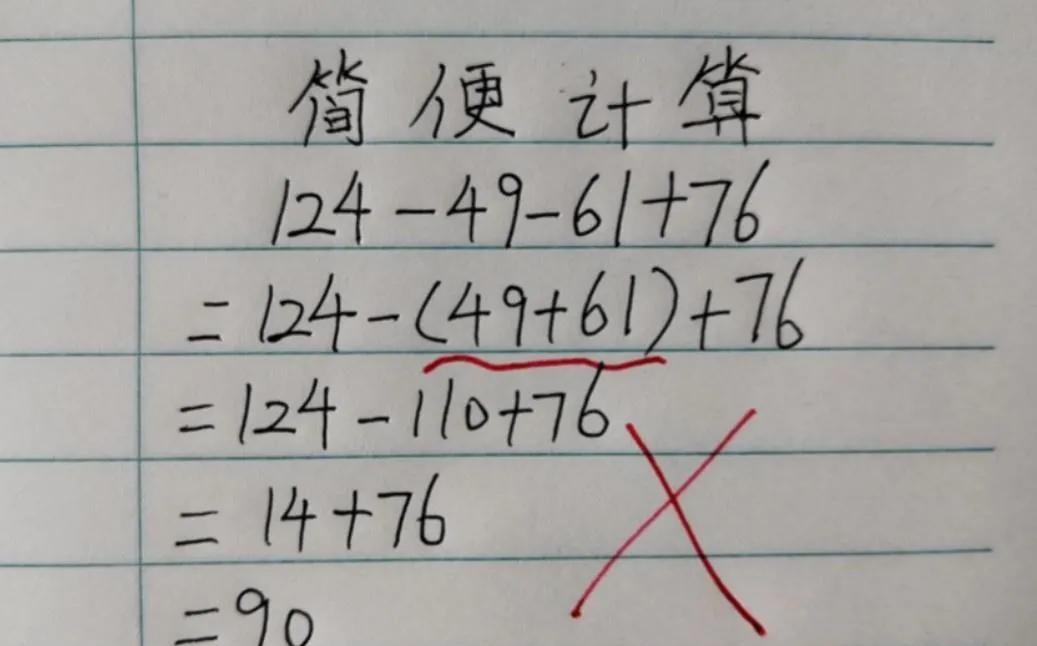 简便计算
124-49-61+76
=124-(49+61)+76
=124-110+76
=14+76
=90